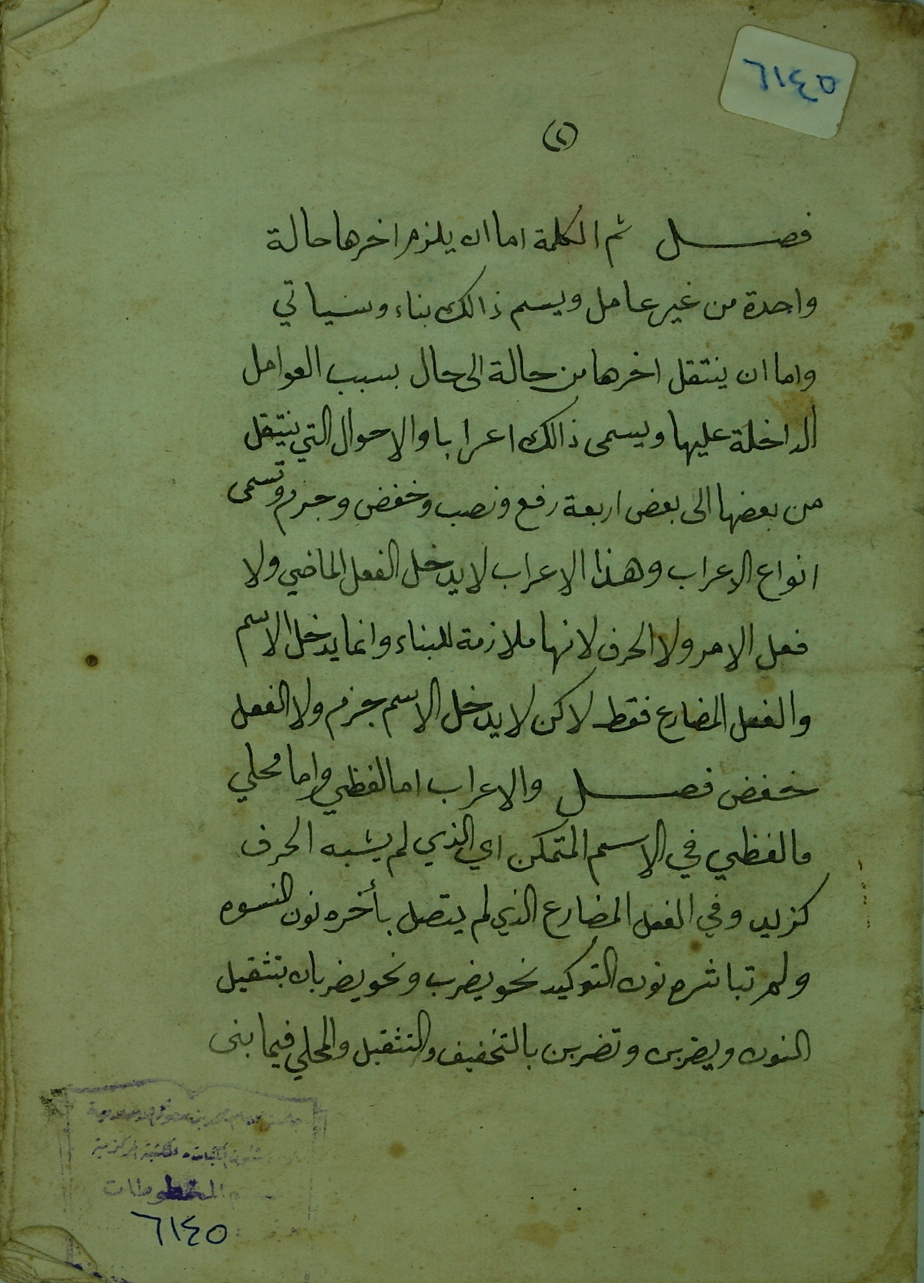 ٦١٤٥
(٢)
فصل ثم الكلمة اما ان يلزم اخرها حالة
واحدة من غير عامل ويسم ذالك بناء وسياتي
واما ان ينتقل اخرها من حالة الى حال بسبب العوامل
الداخلة عليها ويسمى ذالك اعرابا والاحوال التي ينتقل
من بعضها الى بعض اربعة رفع ونصب وخفض وجزم وتسمى
انواع الاعراب وهذا الاعراب لا يدخل الفعل الماضي ولا
فعل الامر ولا الحرف لانها ملازمة للبناء وانما يدخل الاسم
والفعل المضارع فقط لاكن لا يدخل الاسم جزم ولا الفعل
خفض فصل والاعراب اما لفظي واما محلي
فالفظي في الاسم المتمكن اي الذي لم يشبه الحرف
كزيد وفي الفعل المضارع الذي لم يتصل بأخره نون النسوه
ولم تباشره نون التوكيد نحو يضرب ونحو يضربان بتثقيل
النون ويضربن وتضربن بالتخفيف والتثقيل والمحلي فيما بنى
المخطوطات
٦١٤٥